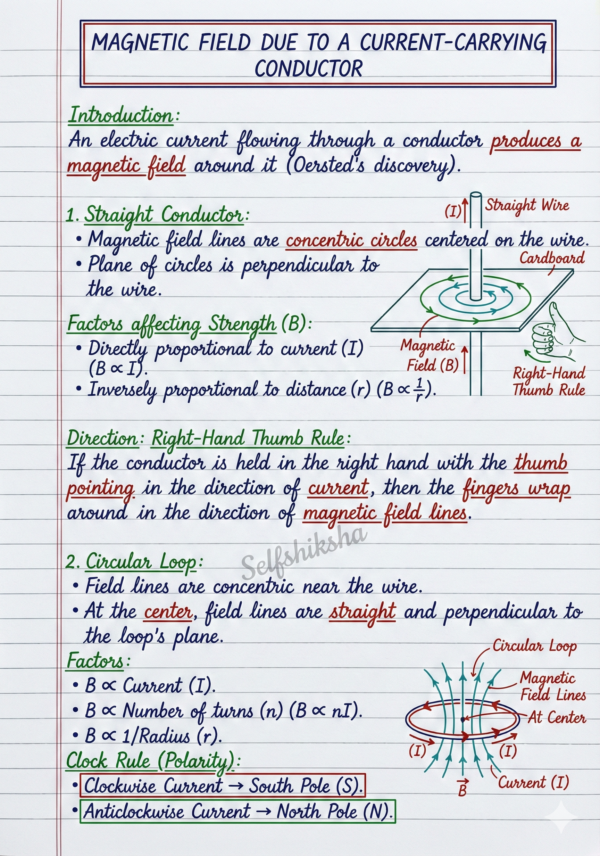 MAGNETIC FIELD DUE TO A CURRENT-CARRYING
CONDUCTOR
Introduction:
An electric current flowing through a conductor produces a
magnetic field around it (Oersted's discovery).
1. Straight Conductor:
• Magnetic field lines are concentric circles centered on the wire.
• Plane of circles is perpendicular to
the wire.
(I)
Straight Wire
Cardboard
Magnetic
Field (B)
Right-Hand
Thumb Rule
Factors affecting Strength (B):
• Directly proportional to current (I)
(B ∝ I).
• Inversely proportional to distance (r) (B ∝ 1/r).
Direction: Right-Hand Thumb Rule:
If the conductor is held in the right hand with the thumb
pointing in the direction of current, then the fingers wrap
around in the direction of magnetic field lines.
Selfshiksha
2. Circular Loop:
• Field lines are concentric near the wire.
• At the center, field lines are straight and perpendicular to
the loop's plane.
Factors:
• B ∝ Current (I).
• B ∝ Number of turns (n) (B ∝ nI).
• B ∝ 1/Radius (r).
Clock Rule (Polarity):
• Clockwise Current → South Pole (S).
• Anticlockwise Current → North Pole (N).
Circular Loop
Magnetic
Field Lines
At Center
(I)
(I)
Current (I)
B